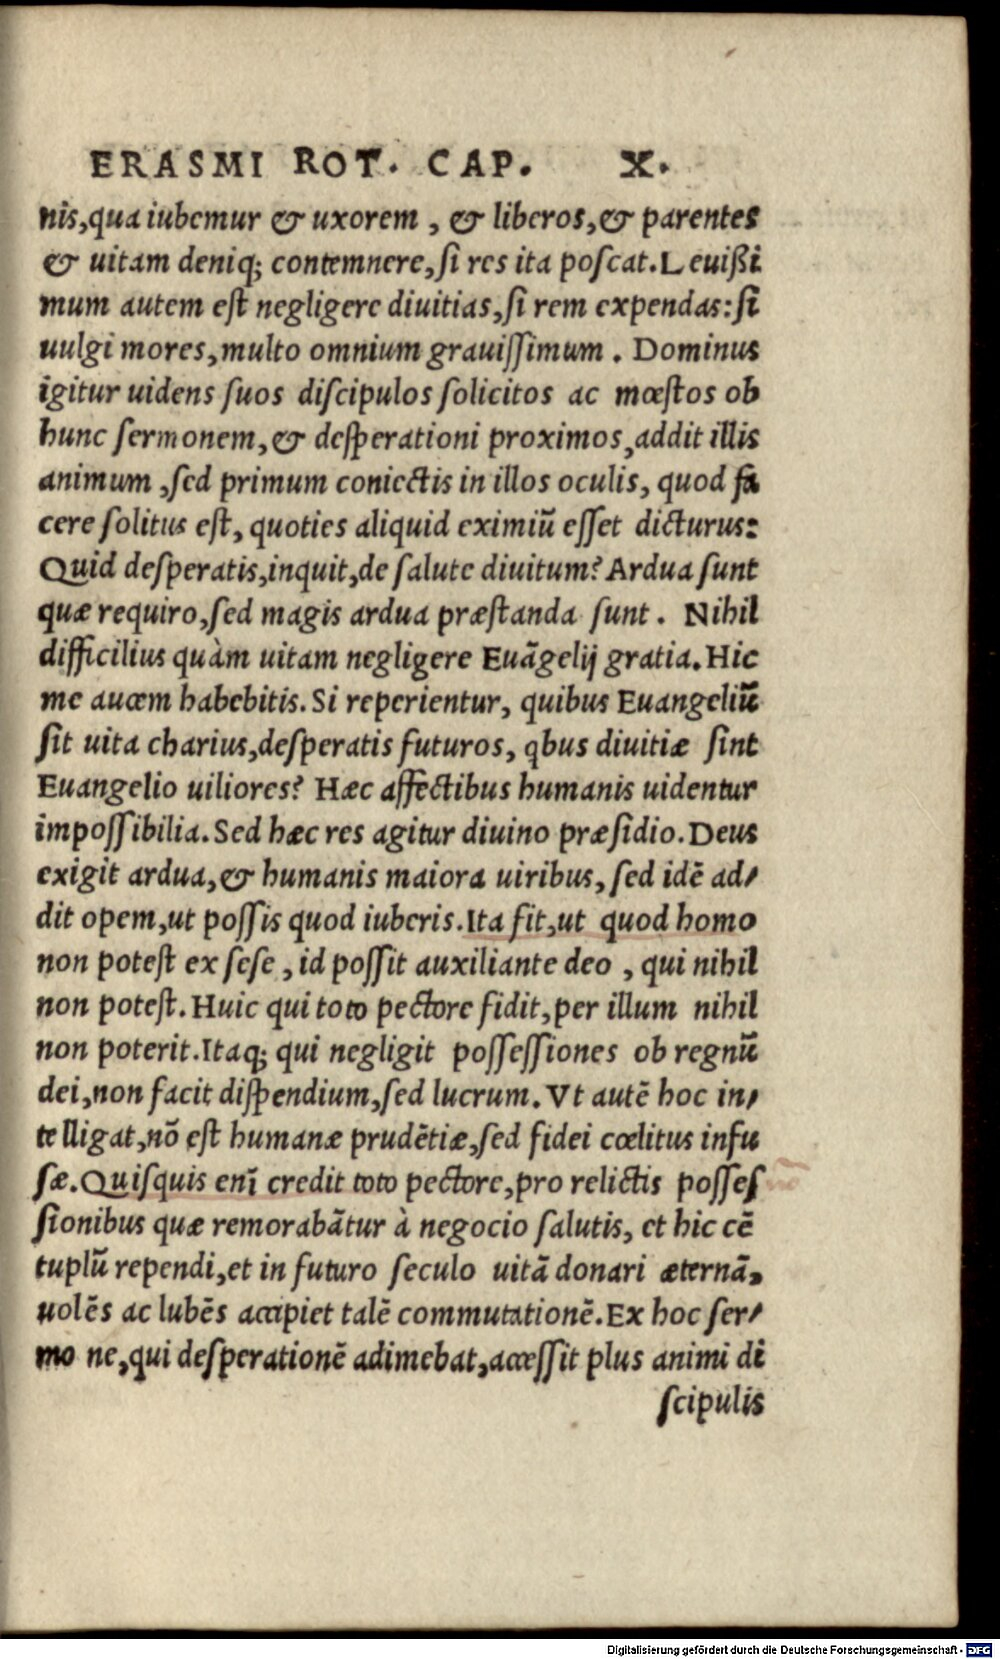 ERASMI ROT. CAP. X.
nis,qua iubemur & uxorem , & liberos,& parentes
& uitam deniq; contemnere,ſi res ita poſcat.Leuißi
mum autem eſt negligere diuitias,ſi rem expendas:ſi
uulgi mores,multo omnium grauiſſimum . Dominus
igitur uidens ſuos diſcipulos ſolicitos ac mœſtos ob
hunc ſermonem,& deſperationi proximos,addit illis
animum ,ſed primum coniectis in illos oculis, quod fa
cere ſolitus eſt, quoties aliquid eximiũ eſſet dicturus:
Quid deſperatis,inquit,de ſalute diuitum? Ardua ſunt
quæ requiro,ſed magis ardua præſtanda ſunt . Nihil
difficilius quàm uitam negligere Euãgelij gratia. Hic
me autem habebitis. Si reperientur, quibus Euangeliũ
ſit uita charius,deſperatis futuros, qbus diuitiæ ſint
Euangelio uiliores? Hæc affectibus humanis uidentur
impoſſibilia. Sed hæc res agitur diuino præſidio. Deus
exigit ardua,& humanis maiora uiribus, ſed idẽ ad/
dit opem,ut poſſis quod iuberis.Ita fit,ut quod homo
non poteſt ex ſeſe , id poſſit auxiliante deo , qui nihil
non poteſt. Huic qui toto pectore fidit,per illum nihil
non poterit.Itaq; qui negligit poſſeſſiones ob regnũ
dei,non facit diſpendium,ſed lucrum. Vt autẽ hoc in/
telligat,nõ eſt humanæ prudẽtiæ,ſed fidei cœlitus infu
ſæ.Quiſquis enĩ credit toto pectore,pro relictis poſſeſ
ſionibus quæ remorabãtur à negocio ſalutis, et hic cẽ
tuplũ rependi,et in futuro ſeculo uitã donari æternã,
uolẽs ac lubẽs accipiet talẽ commutationẽ. Ex hoc ſer/
mo ne,qui deſperationẽ adimebat,acceſſit plus animi di
ſcipulis
Digitalisierung gefördert durch die Deutsche Forschungsgemeinschaft - DFG